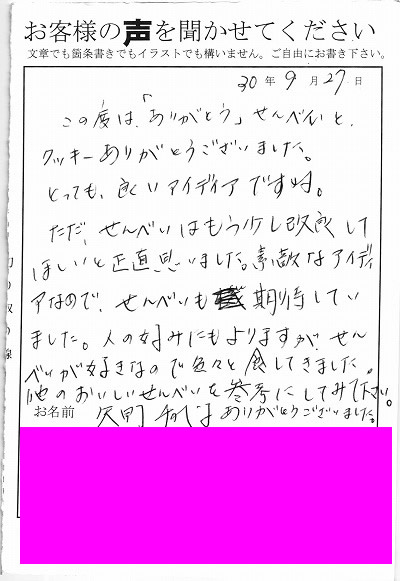 お客様の声を聞かせてください
文章でも箇条書きでもイラストでも構いません。ご自由にお書き下さい。
30年9月27日
この度は、「ありがとう」せんべいと、
クッキーありがとうございました。
とっても、良いアイディアですね。
ただ、せんべいはもう少し改良して
ほしいと正直思いました。素敵なアイディ
アなので、せんべいも期待してい
ました。人の好みにもよりますが、せん
べいが好きなので色々と食してきました。
他のおいしいせんべいを参考にしてみて下さい。
お名前 ありがとうございました。